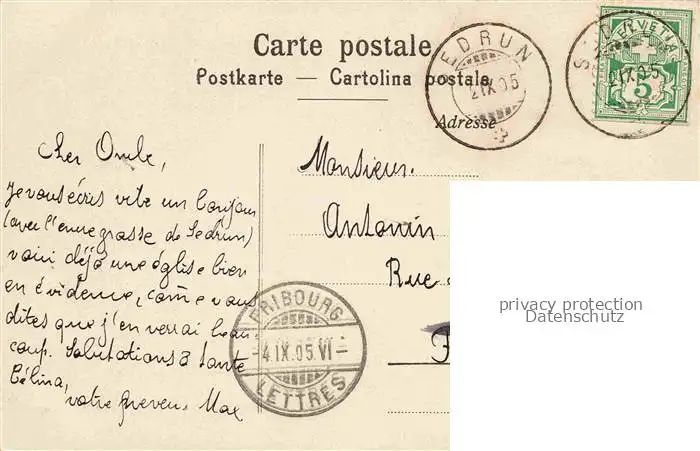 Carte postale
Postkarte — Cartolina postale
Adresse
SEDRUN
2 IX 05
SEDRUN
2 IX 05
HELVETIA
5
Cher Oncle,
Je vous écris vite un bonjour
(avec l'encre grasse de Sedrun)
voici déjà une église bien
en évidence, come vous
dites que j'en verrai beau-
coup. Salutations à tante
Célina,
votre neveu, Max
Monsieur.
Antonin
Rue
FRIBOURG
-4 IX.05.VI-
LETTRES
privacy protection
Datenschutz